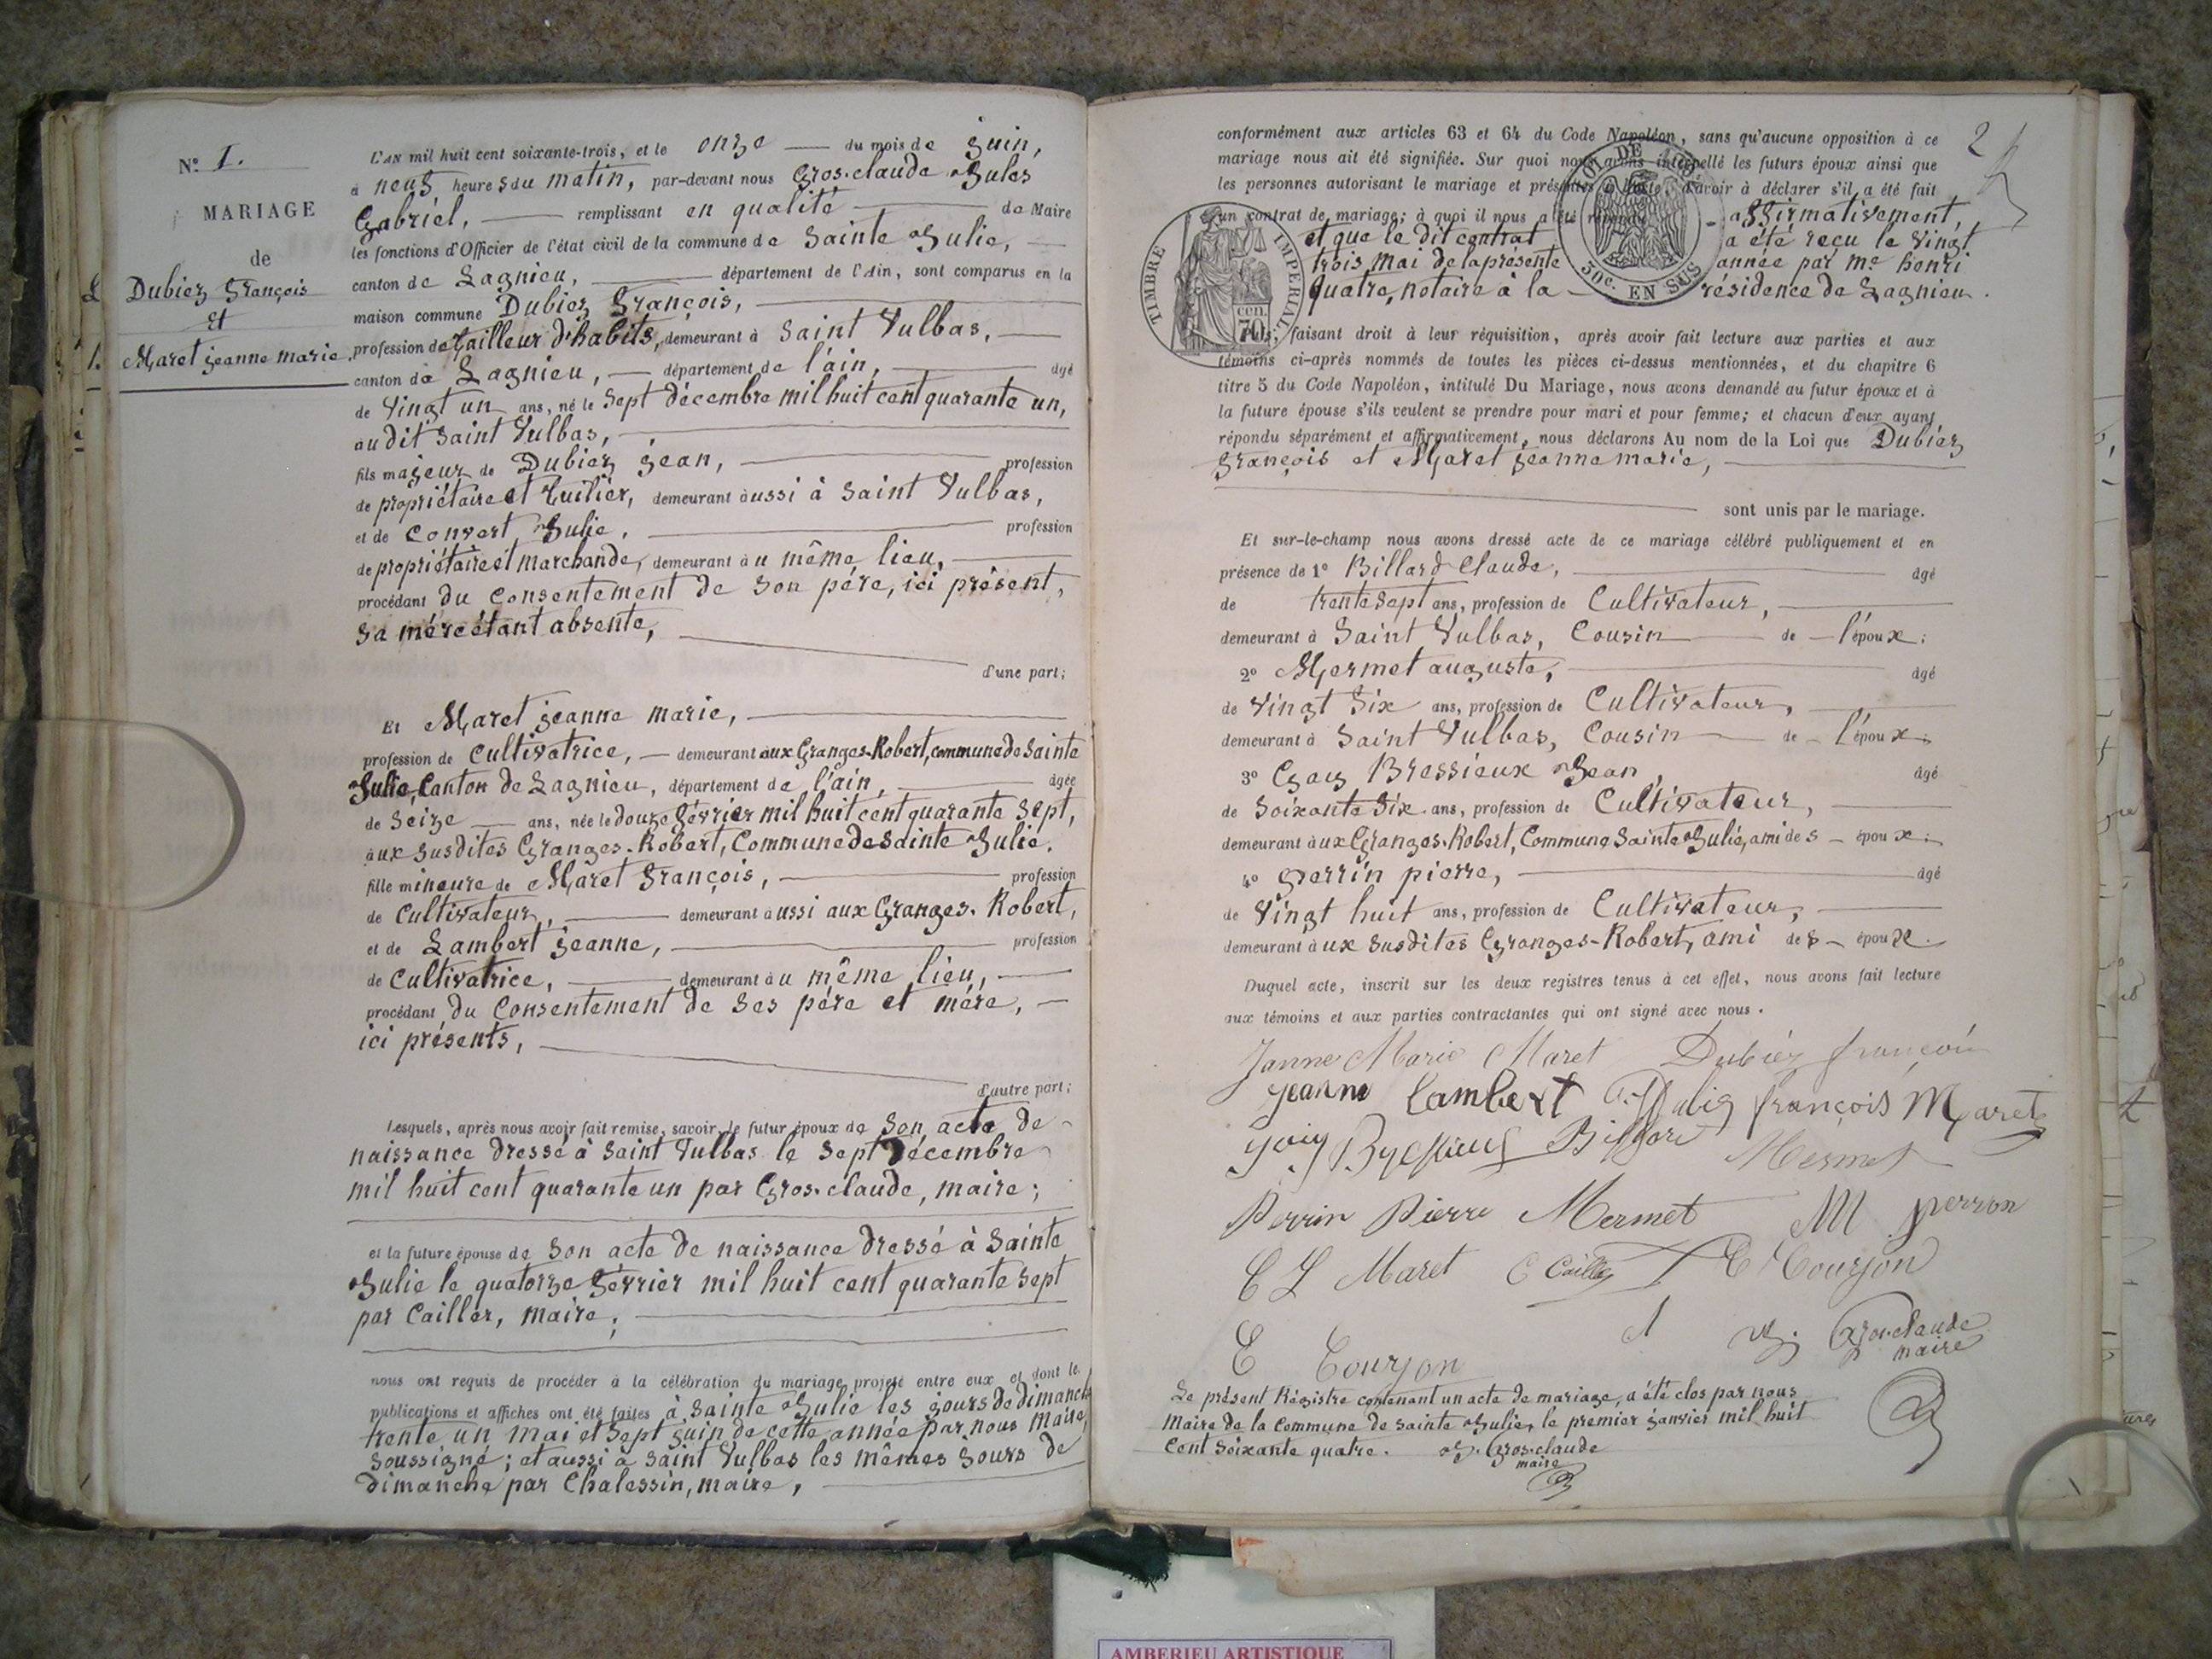 N.º 1.
MARIAGE
de
Dubiez François
Et
Maret jeanne marie.
L'an mil huit cent soixante-trois, et le onze du mois de juin,
à neuf heures du matin, par-devant nous Gros-claude Jules
Gabriel, remplissant en qualité de Maire
les fonctions d'Officier de l'état civil de la commune de Sainte Julie,
canton de Lagnieu, département de l'Ain, sont comparus en la
maison commune Dubiez François,
profession de tailleur d'habits, demeurant à Saint Vulbas,
canton de Lagnieu, département de l'ain, âgé
de Vingt un ans, né le Sept décembre mil huit cent quarante un,
au dit Saint Vulbas,
fils majeur de Dubiez jean, profession
de propriétaire et tuilier, demeurant aussi à Saint Vulbas,
et de Convert Julie, profession
de propriétaire et marchande, demeurant au même lieu,
procédant du consentement de son père, ici présent,
sa mère étant absente,
d'une part;
Et Maret jeanne marie,
profession de Cultivatrice, demeurant aux Granges-Robert, commune de Sainte
Julie, Canton de Lagnieu, département de l'ain, âgée
de Seize ans, née le douze février mil huit cent quarante sept,
aux susdites Granges-Robert, Commune de Sainte Julie.
fille mineure de Maret François, profession
de Cultivateur, demeurant aussi aux Granges-Robert,
et de Lambert jeanne, profession
de Cultivatrice, demeurant au même lieu,
procédant du Consentement de ses père et mère,
ici présents,
d'autre part;
Lesquels, après nous avoir fait remise, savoir, le futur époux de Son acte de
naissance dressé à Saint Vulbas le Sept Décembre
mil huit cent quarante un par Gros-claude, maire;
et la future épouse de Son acte de naissance dressé à Sainte
Julie le quatorze février mil huit cent quarante sept
par Cailler, maire;
nous ont requis de procéder à la célébration du mariage projeté entre eux et dont les
publications et affiches ont été faites à Sainte Julie les jours de dimanche
trente un mai et Sept juin de cette année par nous Maire,
Soussigné; et aussi à Saint Vulbas les mêmes jours de
dimanche par Chalessin, maire,
conformément aux articles 63 et 64 du Code Napoléon, sans qu'aucune opposition à ce
mariage nous ait été signifiée. Sur quoi nous avons interpellé les futurs époux ainsi que
les personnes autorisant le mariage et présentes à l'acte, d'avoir à déclarer s'il a été fait
un contrat de mariage; à quoi il nous a été répondu affirmativement,
et que le dit contrat a été reçu le Vingt
trois Mai de la présente année par Me henri
quatre, notaire à la résidence de Lagnieu.
2
TIMBRE IMPÉRIAL
70 cen.
LOI DE
30c. EN SUS
Puis, faisant droit à leur réquisition, après avoir fait lecture aux parties et aux
témoins ci-après nommés de toutes les pièces ci-dessus mentionnées, et du chapitre 6
titre 5 du Code Napoléon, intitulé Du Mariage, nous avons demandé au futur époux et à
la future épouse s'ils veulent se prendre pour mari et pour femme; et chacun d'eux ayant
répondu séparément et affirmativement, nous déclarons Au nom de la Loi que Dubiez
François et Maret jeanne marie,
sont unis par le mariage.
Et sur-le-champ nous avons dressé acte de ce mariage célébré publiquement et en
présence de 1º Billard Claude, âgé
de trente Sept ans, profession de Cultivateur,
demeurant à Saint Vulbas, Cousin de l'époux;
2º Mermet auguste, âgé
de Vingt Six ans, profession de Cultivateur,
demeurant à Saint Vulbas, Cousin de l'époux;
3º Gay Bressieux Jean, âgé
de Soixante Six ans, profession de Cultivateur,
demeurant aux Granges-Robert, Commune Sainte Julie, ami des époux;
4º perrin pierre, âgé
de Vingt huit ans, profession de Cultivateur,
demeurant aux susdites Granges-Robert, ami des époux.
Duquel acte, inscrit sur les deux registres tenus à cet effet, nous avons fait lecture
aux témoins et aux parties contractantes qui ont signé avec nous.
Janne Marie Maret Dubiez françois
jeanne Lambert françois Maret
Billard Mermet
Perrin Pierre Mermet M perron
C L Maret C Cailler E Courjon
E Courjon J. G. Gros-claude
maire
Le présent Régistre contenant un acte de mariage, a été clos par nous
Maire de la Commune de Sainte Julie, le premier janvier mil huit
Cent Soixante quatre. J. G. Gros-claude
maire
AMBERIEU ARTISTIQUE